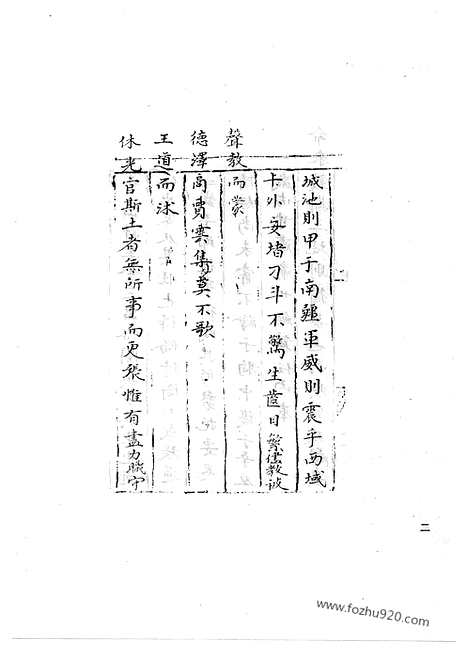 城池則甲于南疆軍威則震乎西域
卡小安堵刁斗不驚生齒日繁建教被
聲教而蒙
德澤商賈雲集莫不歌
王道而沭
休光官斯土者無所事而更張惟有盡力職守
二
www.fozhu920.com